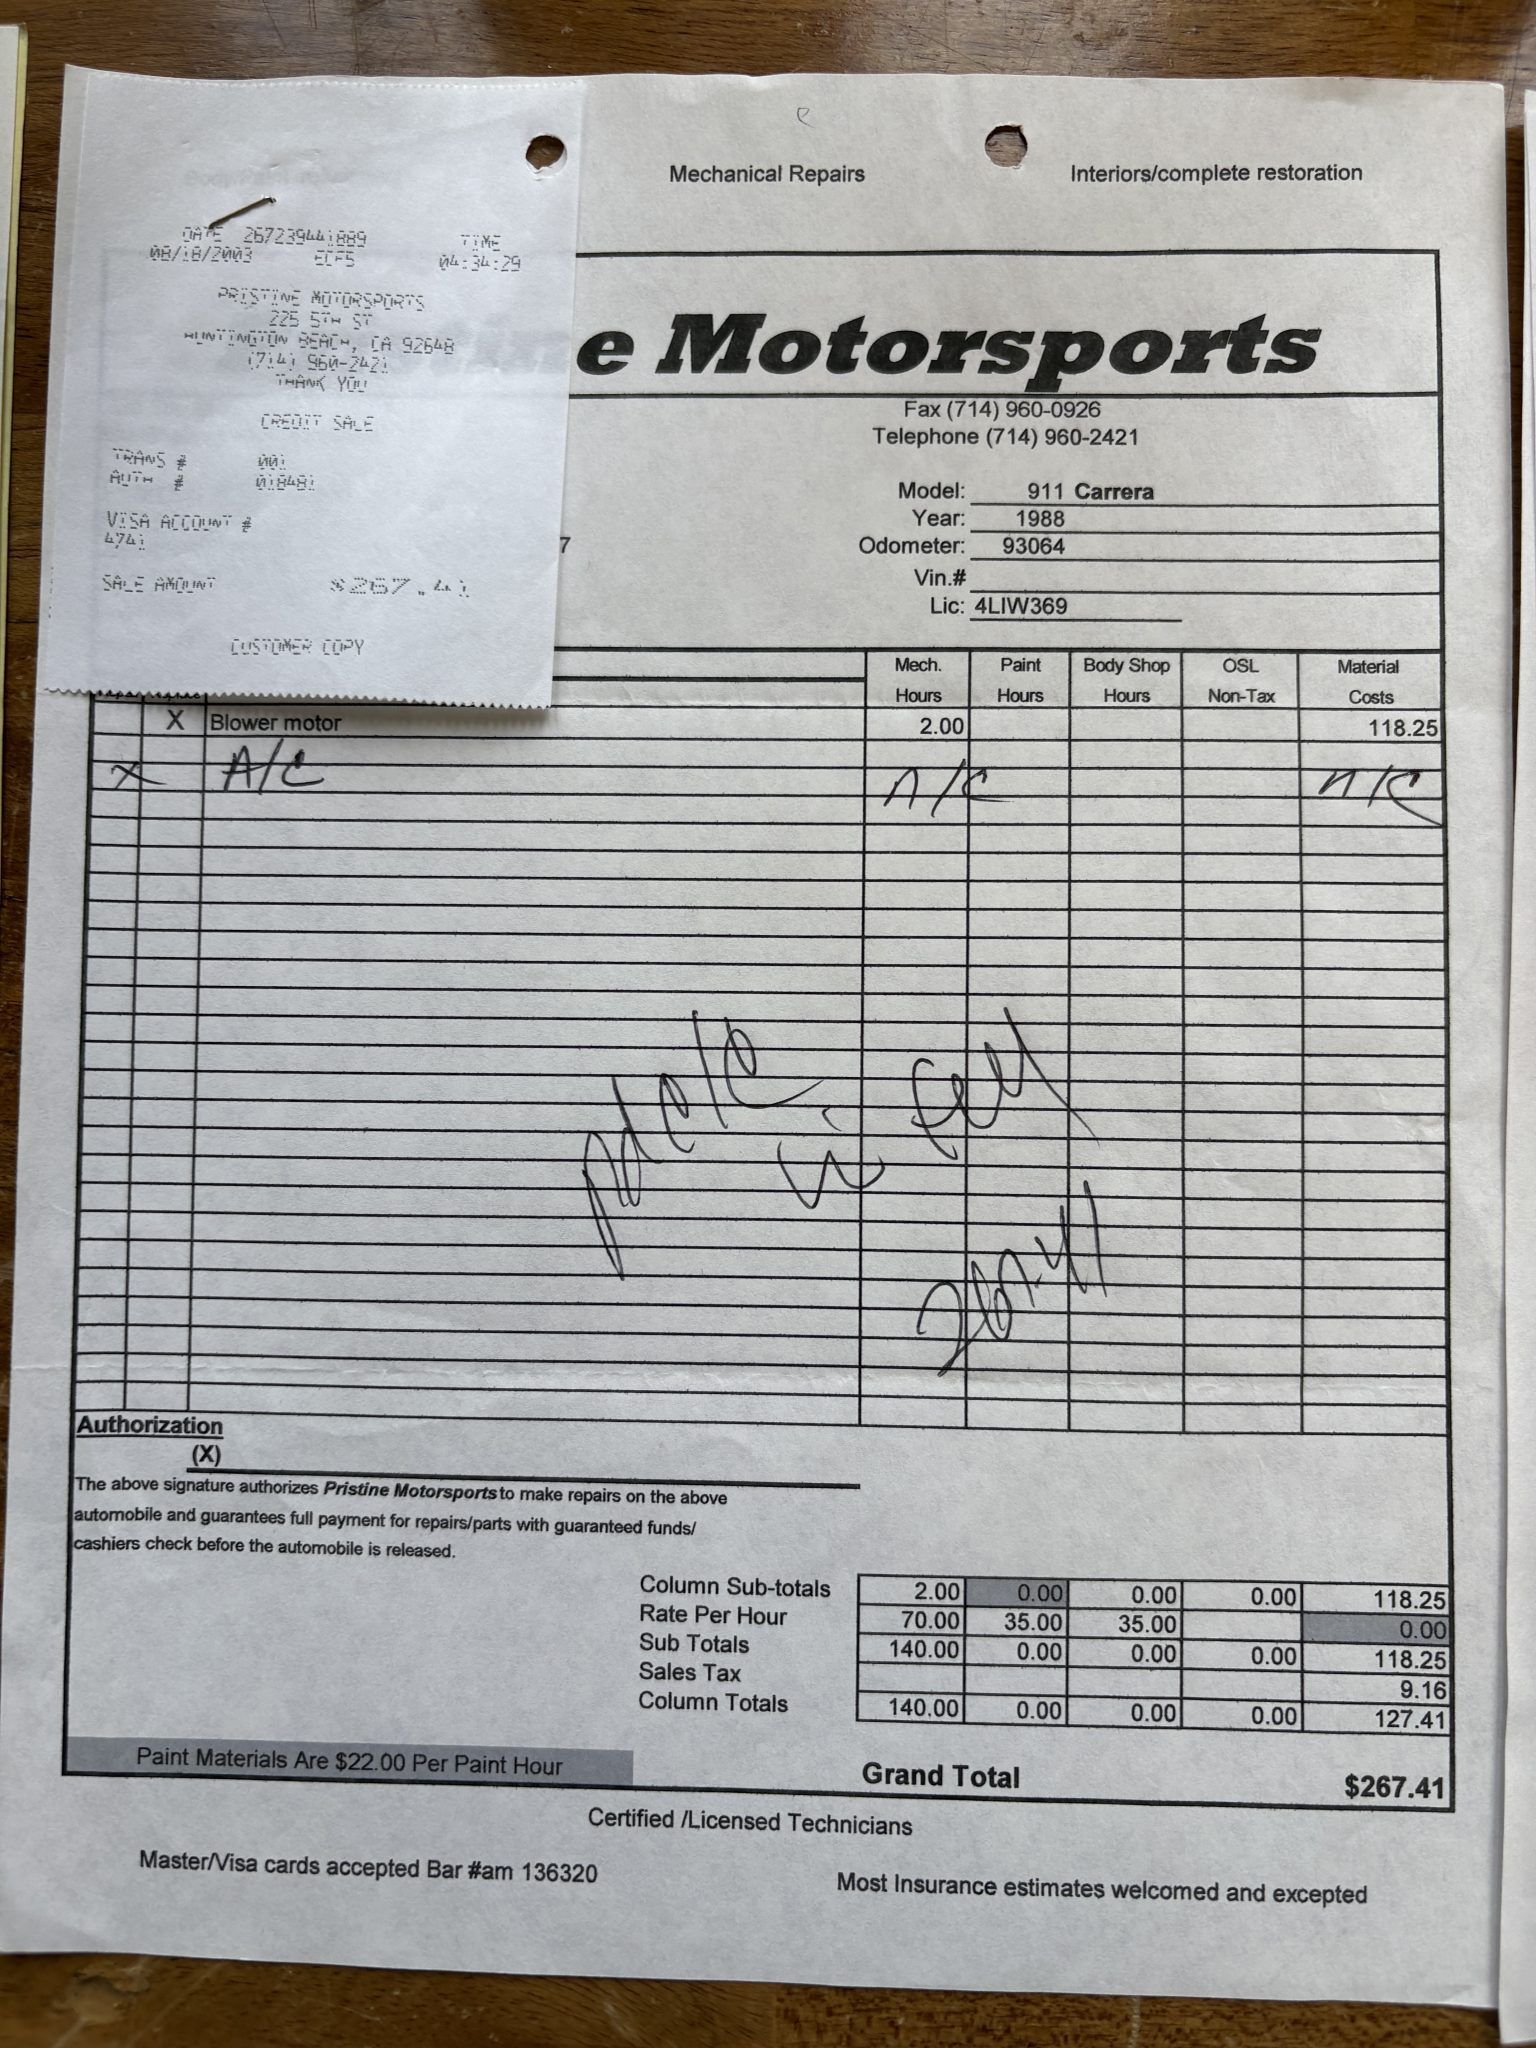 Mechanical Repairs Interiors/complete restoration
DATE 267239441889 TIME
08/18/2003 ECF5 04:34:29
PRISTINE MOTORSPORTS
225 5TH ST
HUNTINGTON BEACH, CA 92648
(714) 960-2421
THANK YOU
CREDIT SALE
TRANS # 001
AUTH # 018481
VISA ACCOUNT #
4741
SALE AMOUNT $267.41
CUSTOMER COPY
e Motorsports
Fax (714) 960-0926
Telephone (714) 960-2421
Model: 911 Carrera
Year: 1988
7 Odometer: 93064
Vin.#
Lic: 4LIW369
Mech. Paint Body Shop OSL Material
Hours Hours Hours Non-Tax Costs
X Blower motor 2.00 118.25
X A/C n/c n/c
pd c/c
267.41
Authorization
(X)
The above signature authorizes Pristine Motorsports to make repairs on the above
automobile and guarantees full payment for repairs/parts with guaranteed funds/
cashiers check before the automobile is released.
Column Sub-totals 2.00 0.00 0.00 0.00 118.25
Rate Per Hour 70.00 35.00 35.00 0.00
Sub Totals 140.00 0.00 0.00 0.00 118.25
Sales Tax 9.16
Column Totals 140.00 0.00 0.00 0.00 127.41
Paint Materials Are $22.00 Per Paint Hour
Grand Total $267.41
Certified /Licensed Technicians
Master/Visa cards accepted Bar #am 136320
Most Insurance estimates welcomed and excepted